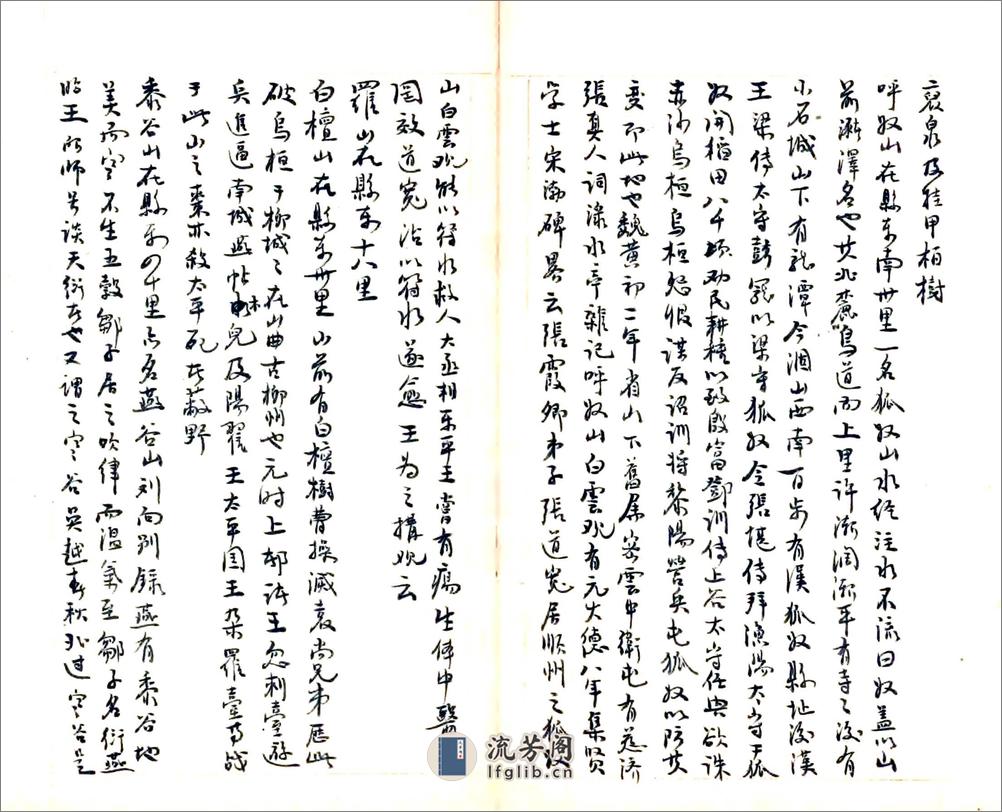 裒泉及挂甲柏樹
呼奴山在縣東南卅里一名狐奴山水經注水不流曰奴盖以山
前瀦澤名也其北麓鳥道而上里许漸濶漸平有寺寺後有
小石城山下有龍潭今涸山西南百步有漢狐奴縣址後漢
王梁傳太守彭寵以梁守狐奴令張堪傳拜漁陽太守于狐
奴開稻田八千頃劝民耕種以致殷富鄧訓傳上谷太守任興欲诛
赤沙烏桓烏桓怨恨谋反诏訓将黎陽營兵屯狐奴以防其
变即此地也魏黄初二年省山下舊属密雲中衛屯有慈济
張真人詞渌水亭雜记呼奴山白雲观有元大德八年集贤
学士宋渤碑畧云張霞卿弟子張道宽居順州之狐奴
山白雲观能以符水救人大丞相東平王嘗有瘍生体中醫
罔效道宽沾以符水遂愈王为之構观云
羅山在縣東十八里
白檀山在縣東卅里山前有白檀樹曹操滅袁尚兄弟歷此
破烏桓于柳城城在山曲古柳州也元时上都诸王忽刺臺遊
兵進逼南城燕帖木兒及陽翟王太平国王朶羅臺等战
于此山之棗林殺太平死者蔽野
黍谷山在縣東四十里亦名燕谷山刘向别録燕有黍谷地
美而寒不生五穀鄒子居之吹律而温氣至鄒子名衍燕
昭王所师号谈天衍者也又謂之寒谷吳越春秋北过寒谷是
流芳阁
lfglib.cn